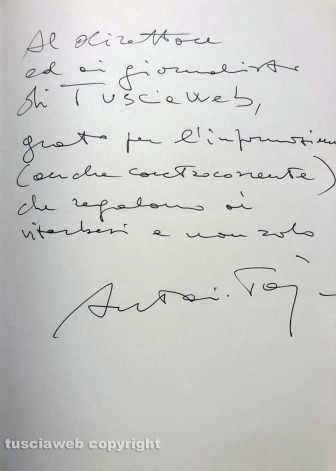 Al direttore
ed ai giornalisti
di Tusciaweb,
grato per l'informazione
(anche controcorrente)
che regalano ai
viterbesi e non solo
tusciaweb copyright